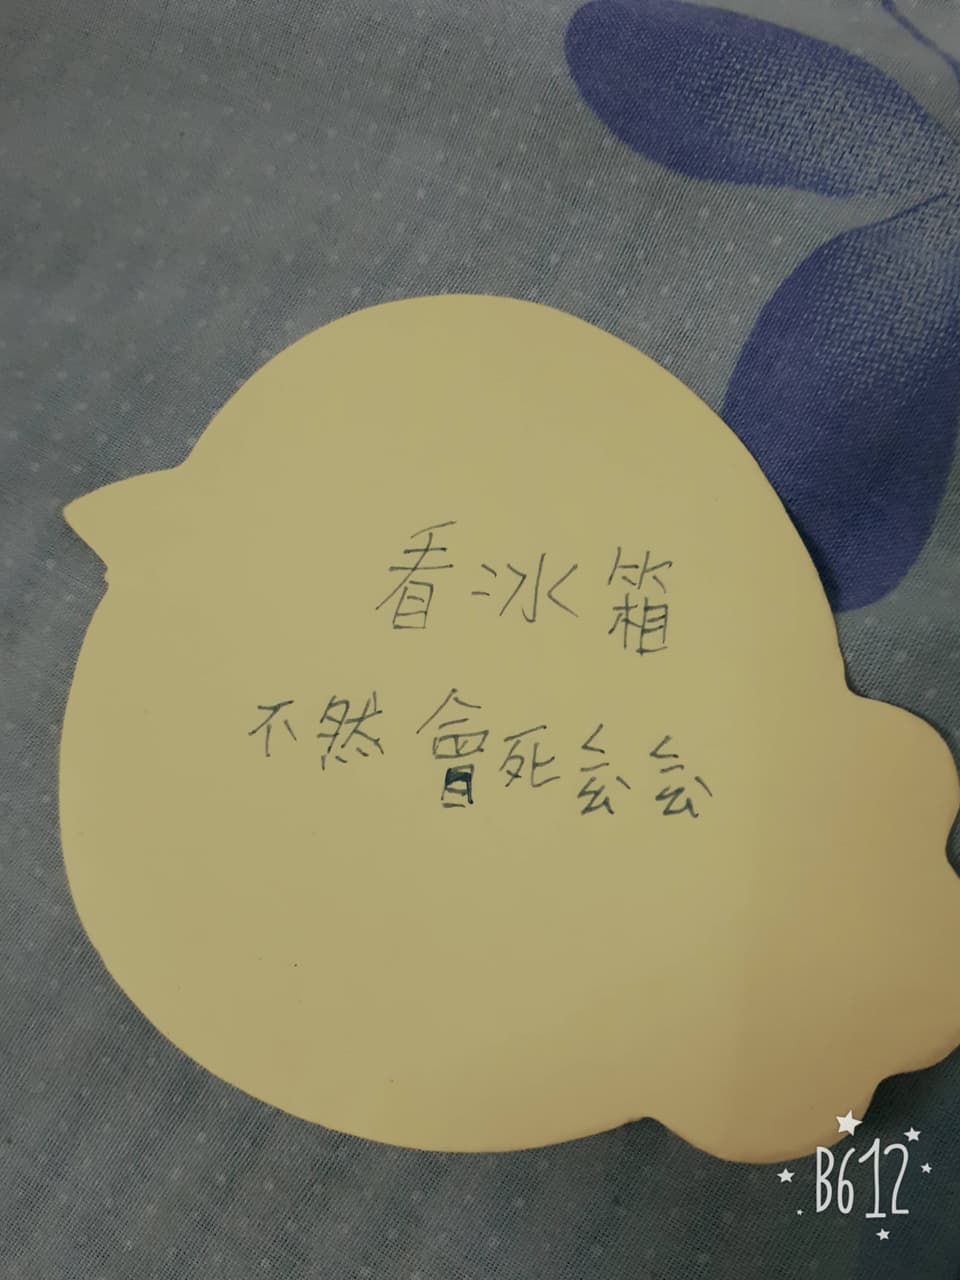 看冰箱
不然會死
B612